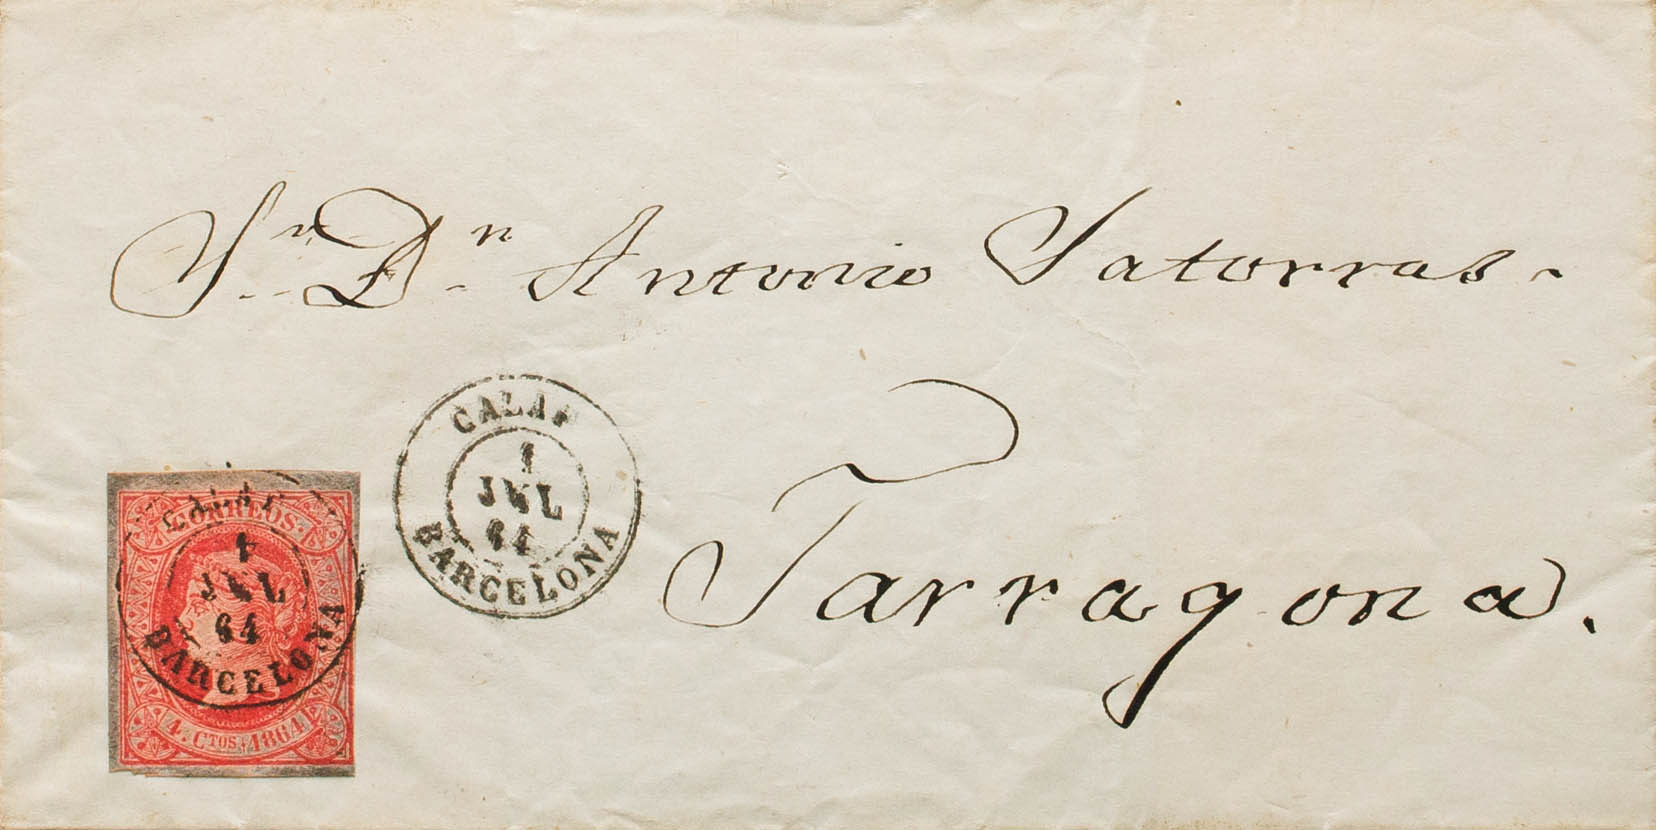 Sr. Dn. Antonio Satorras.
CALAF
1
JUL
64
BARCELONA
Tarragona.
CORREOS.
1
JUL
64
BARCELONA
4. CTOS. 1864